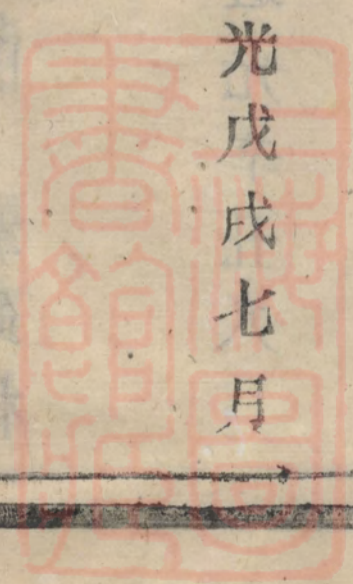 光戊戌七月
上海圖
書館藏